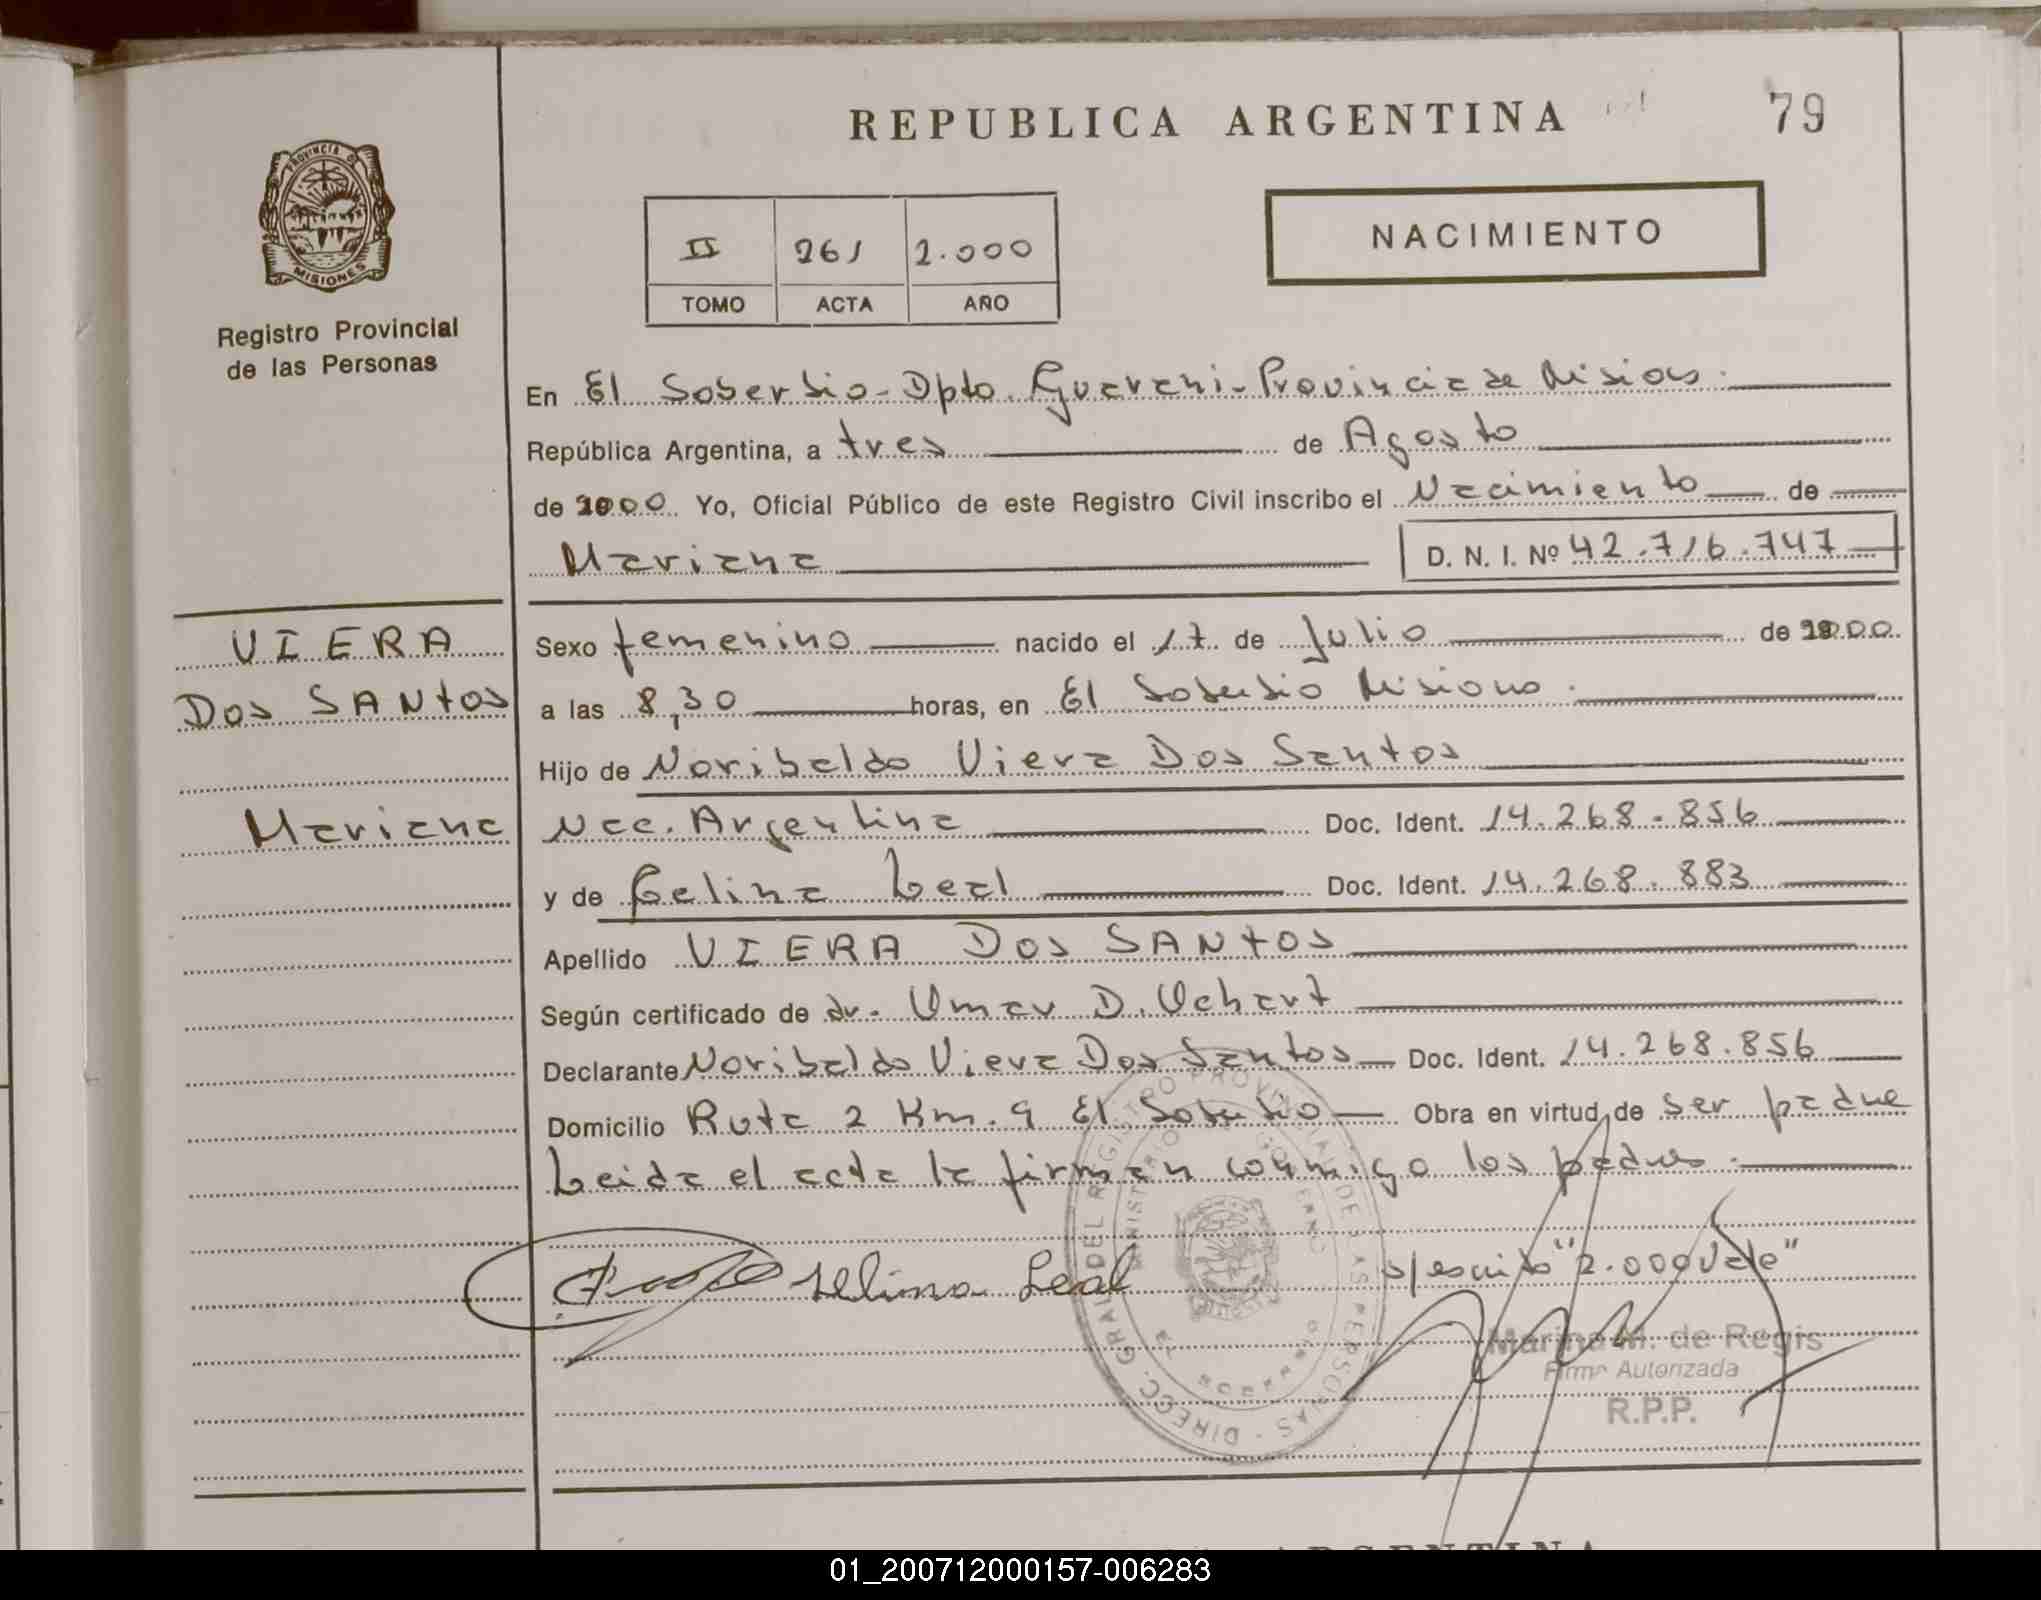 REPUBLICA ARGENTINA
79
PROVINCIA DE
MISIONES
Registro Provincial
de las Personas
II 261 2.000
TOMO ACTA AÑO
NACIMIENTO
En El Soberbio - Dpto. Guarani - Provincia de Misiones.
República Argentina, a tres de Agosto
de 2000 Yo, Oficial Público de este Registro Civil inscribo el Nacimiento de
Mariana D. N. I. Nº 42.716.747
VIERA
DOS SANtOS
Mariana
Sexo femenino nacido el 17 de Julio de 2000
a las 8,30 horas, en El Soberbio Misiones.
Hijo de Noribaldo Viera Dos Santos
Nac. Argentina Doc. Ident. 14.268.856
y de Celina Leal Doc. Ident. 14.268.883
Apellido VIERA DOS SANtOS
Según certificado de dr. Omar D. Ochart
Declarante Noribaldo Viera Dos Santos Doc. Ident. 14.268.856
Domicilio Ruta 2 Km. 9 El Soberbio Obra en virtud de ser padre
Leida el acta la firman conmigo los padres.
Selina Leal s/escrito "2.000 Vale"
DIREC. GRAL. DEL REGISTRO PROVINCIAL DE LAS PERSONAS
Marina M. de Regis
Firma Autorizada
R.P.P.
ARGENTINA
01_200712000157-006283